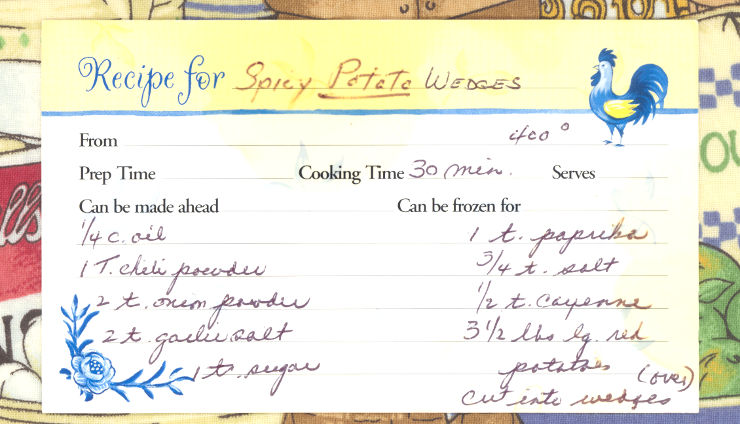 Recipe for Spicy Potato Wedges
From 400°
Prep Time Cooking Time 30 min. Serves
Can be made ahead Can be frozen for
1/4 c. oil
1 T. chili powder
2 t. onion powder
2 t. garlic salt
1 t. sugar
1 t. paprika
3/4 t. salt
1/2 t. Cayenne
3 1/2 lbs lg. red
potatoes
cut into wedges
(over)